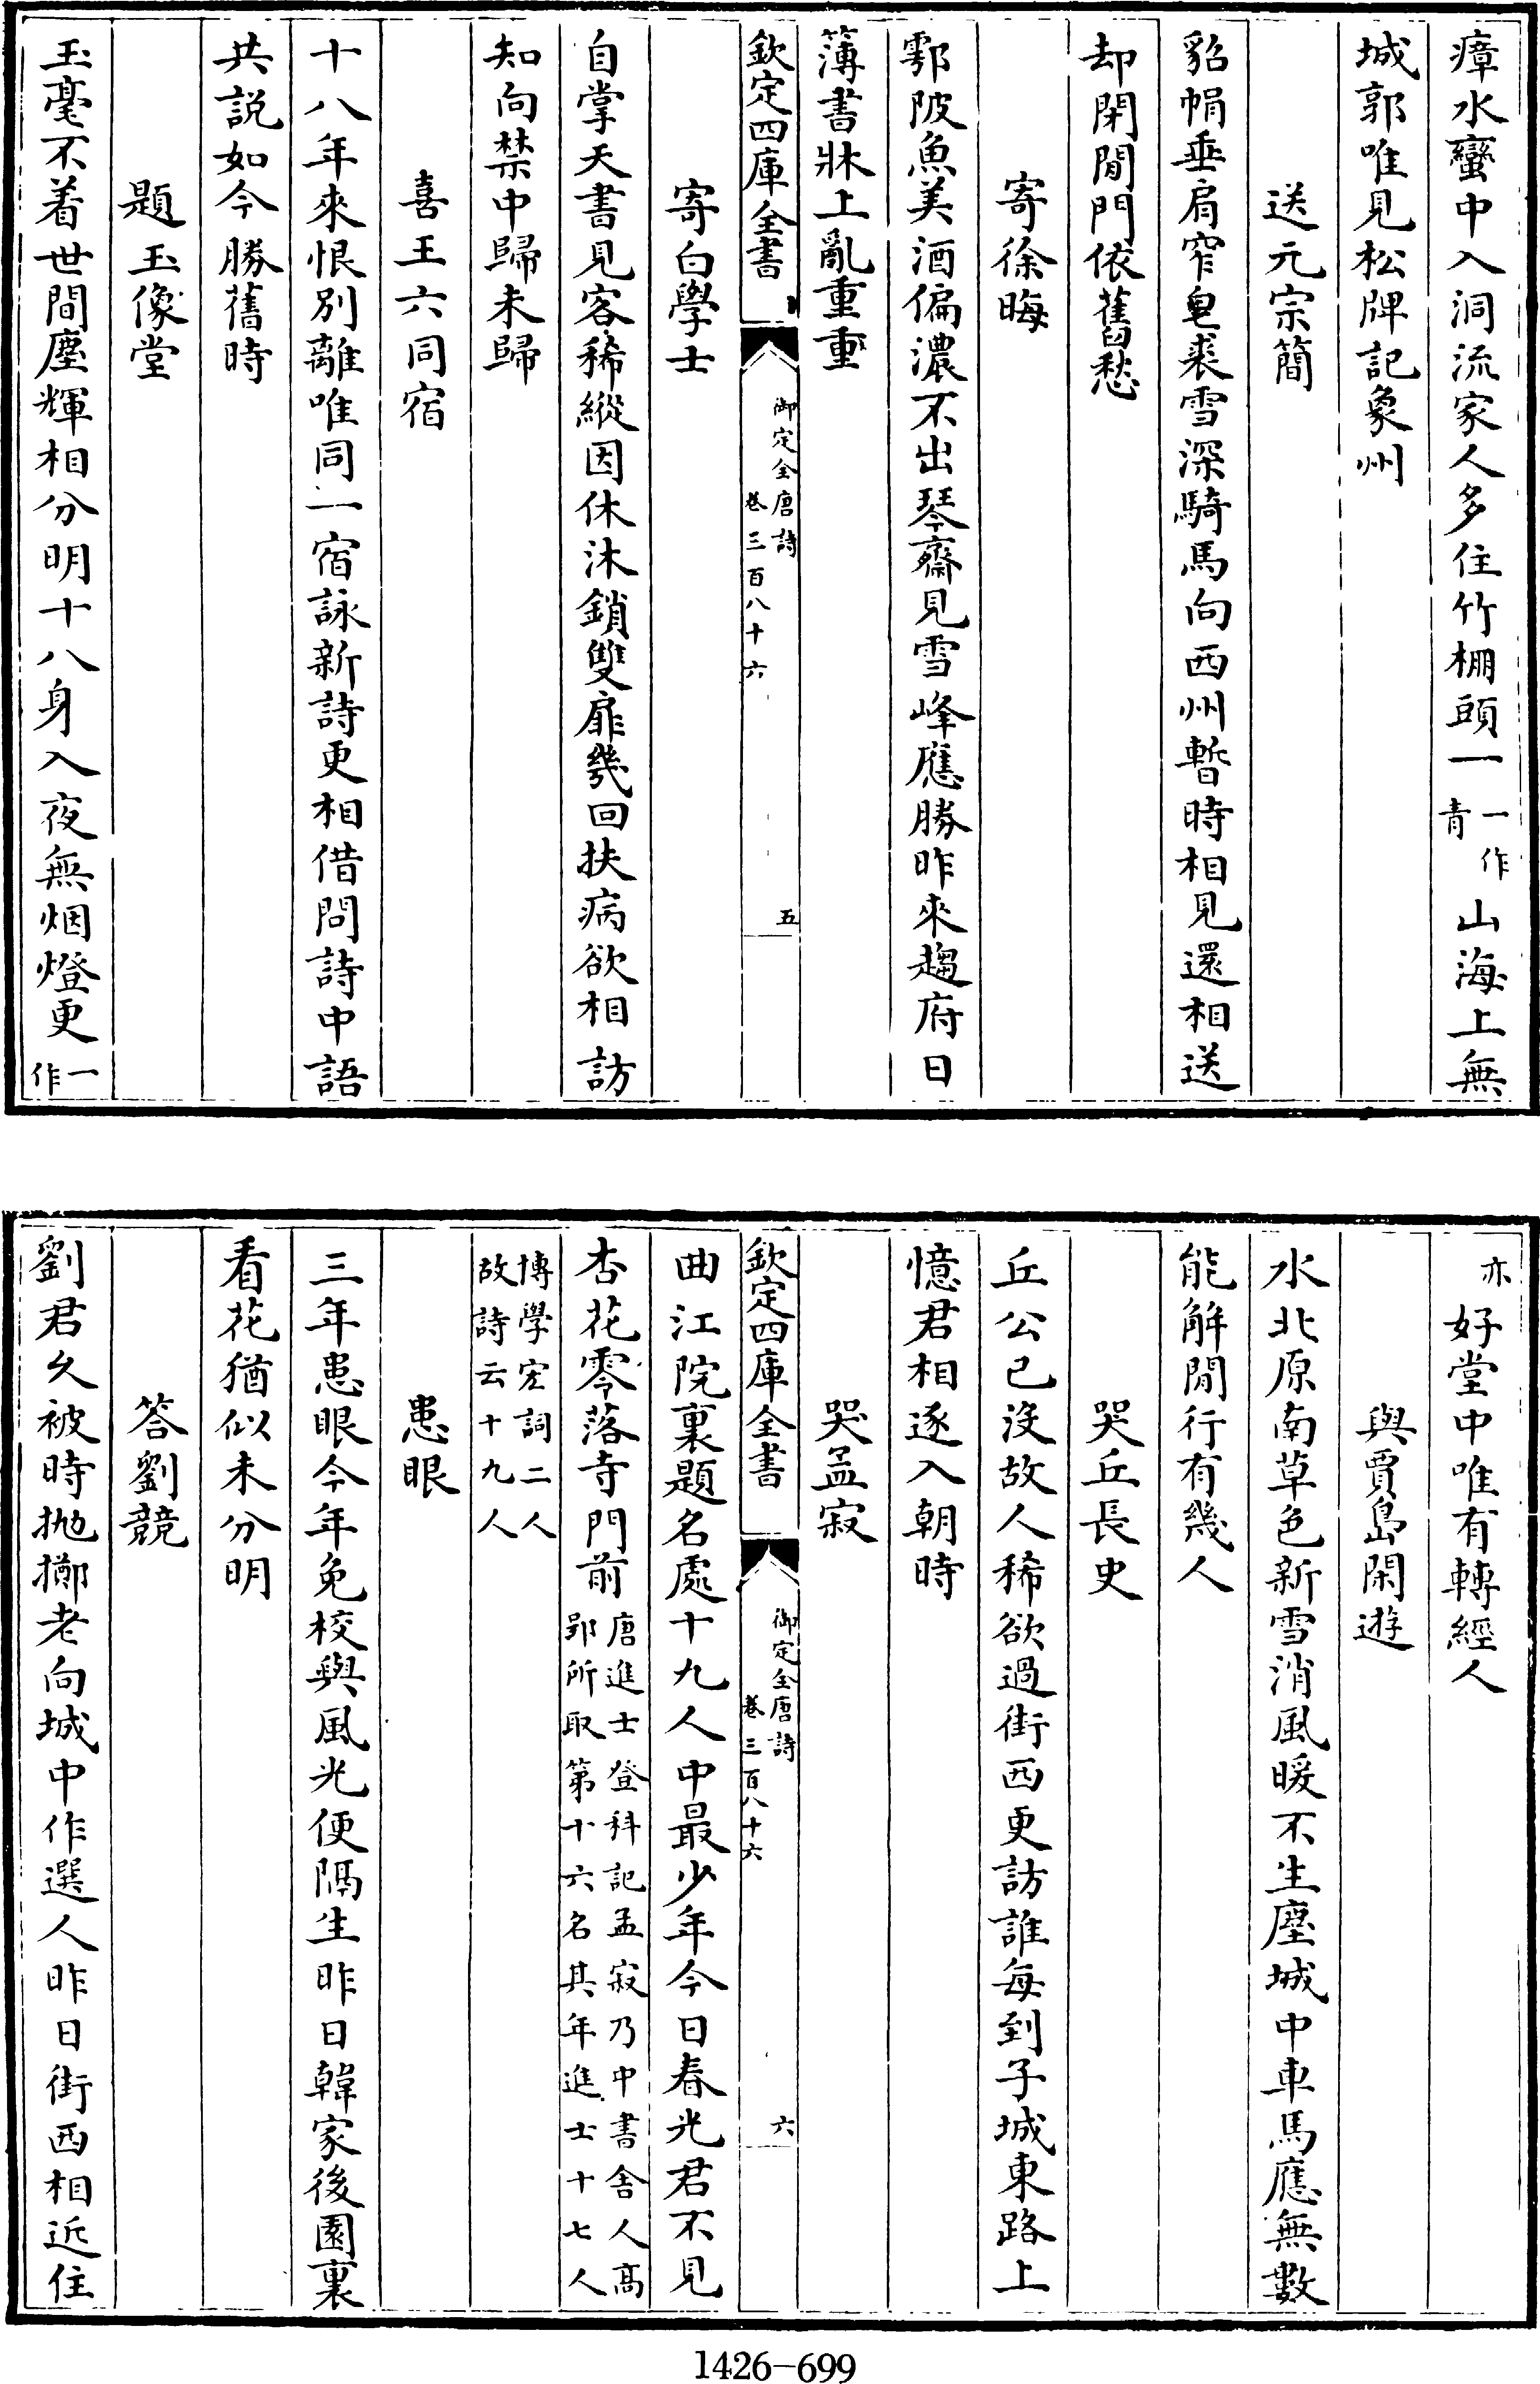 瘴水蠻中入洞流家人多住竹棚頭一一作青山海上無
城郭唯見松牌記象州
送元宗簡
貂帽垂肩窄皂裘雪深騎馬向西州暫時相見還相送
却閉閒門依舊愁
寄徐晦
鄠陂魚美酒偏濃不出琴齋見雪峰應勝昨來趨府日
簿書牀上亂重重
欽定四庫全書
御定全唐詩
卷三百八十六
五
寄白學士
自掌天書見客稀縱因休沐鎖雙扉幾回扶病欲相訪
知向禁中歸未歸
喜王六同宿
十八年來恨別離唯同一宿詠新詩更相借問詩中語
共說如今勝舊時
題玉像堂
玉毫不着世間塵輝相分明十八身入夜無烟燈更一作
亦好堂中唯有轉經人
與賈島閑遊
水北原南草色新雪消風暖不生塵城中車馬應無數
能解閒行有幾人
哭丘長史
丘公已沒故人稀欲過街西更訪誰每到子城東路上
憶君相逐入朝時
哭孟寂
欽定四庫全書
御定全唐詩
卷三百八十六
六
曲江院裏題名處十九人中最少年今日春光君不見
杏花零落寺門前唐進士登科記孟寂乃中書舍人高郢所取第十六名其年進士十七人
博學宏詞二人故詩云十九人
患眼
三年患眼今年免校與風光便隔生昨日韓家後園裏
看花猶似未分明
答劉競
劉君久被時抛擲老向城中作選人昨日街西相近住
1426-699